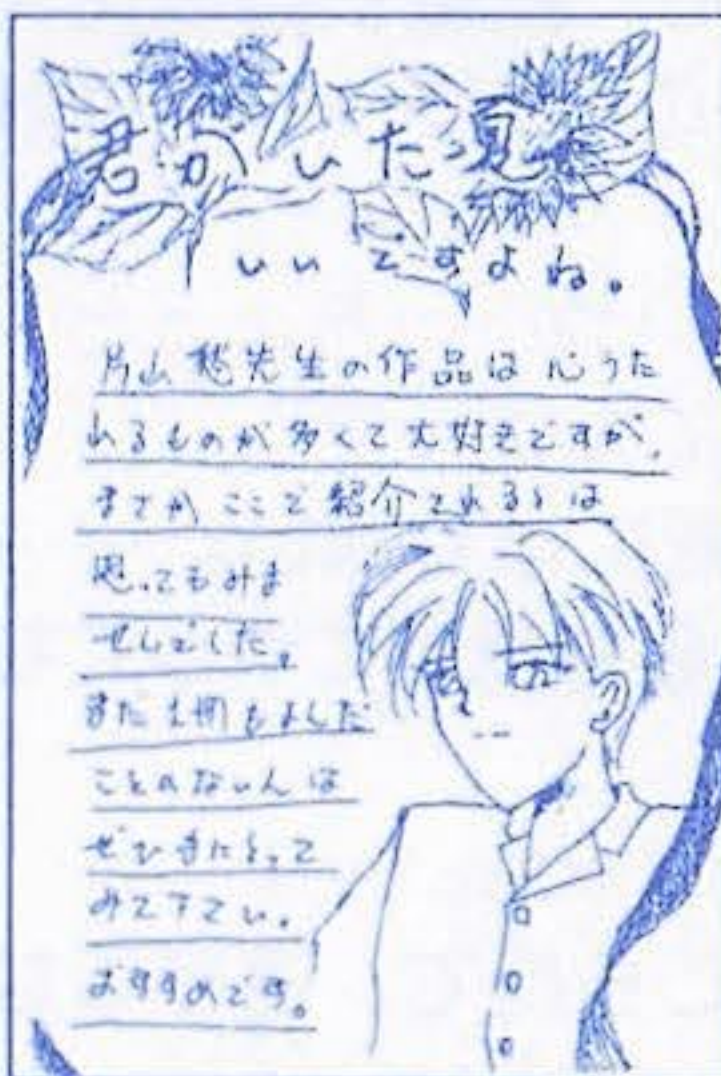 君がいた夏
いいですよね。
片山愁先生の作品は心うた
れるものが多くて大好きですが、
まさかここで紹介されるとは
思ってもみま
せんでした。
まだ1冊もよんだ
ことのない人は
ぜひ手にとって
みて下さい。
おすすめです。